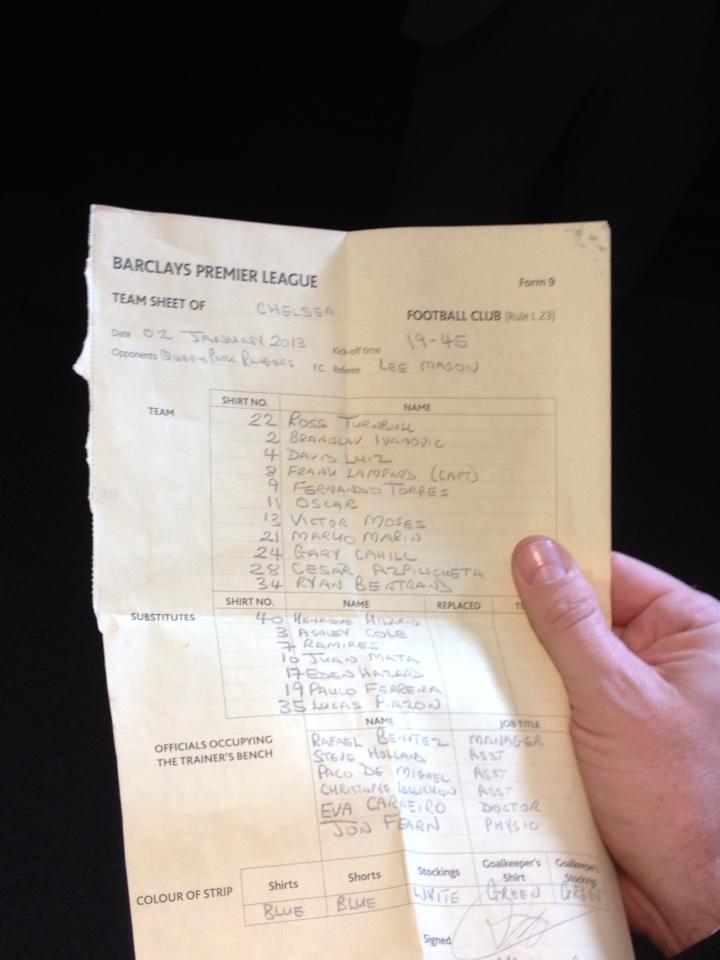 BARCLAYS PREMIER LEAGUE
Form 9
TEAM SHEET OF CHELSEA FOOTBALL CLUB (Rule L.23)
Date 02 JANUARY 2013 Kick-off time 19-45
Opponents QUEEN PARK RANGERS F.C. Referee LEE MASON
SHIRT NO. NAME
TEAM
22 ROSS TURNBULL
2 BRANISLAV IVANOVIC
4 DAVID LUIZ
8 FRANK LAMPARD (CAPT)
9 FERNANDO TORRES
11 OSCAR
13 VICTOR MOSES
21 MARKO MARIN
24 GARY CAHILL
28 CESAR AZPILICUETA
34 RYAN BERTRAND
SHIRT NO. NAME REPLACED
SUBSTITUTES
40 HENRIQUE HILARIO
3 ASHLEY COLE
7 RAMIRES
10 JUAN MATA
17 EDEN HAZARD
19 PAULO FERREIRA
35 LUCAS PIAZON
NAME JOB TITLE
OFFICIALS OCCUPYING
THE TRAINER'S BENCH
RAFAEL BENITEZ MANAGER
STEVE HOLLAND ASST
PACO DE MIGUEL ASST
CHRISTOPHE LOLLICHON ASST
EVA CARNEIRO DOCTOR
JON FEARN PHYSIO
COLOUR OF STRIP
Shirts Shorts Stockings Goalkeeper's Shirt Goalkeeper's Stocking
BLUE BLUE WHITE GREEN GREEN
Signed